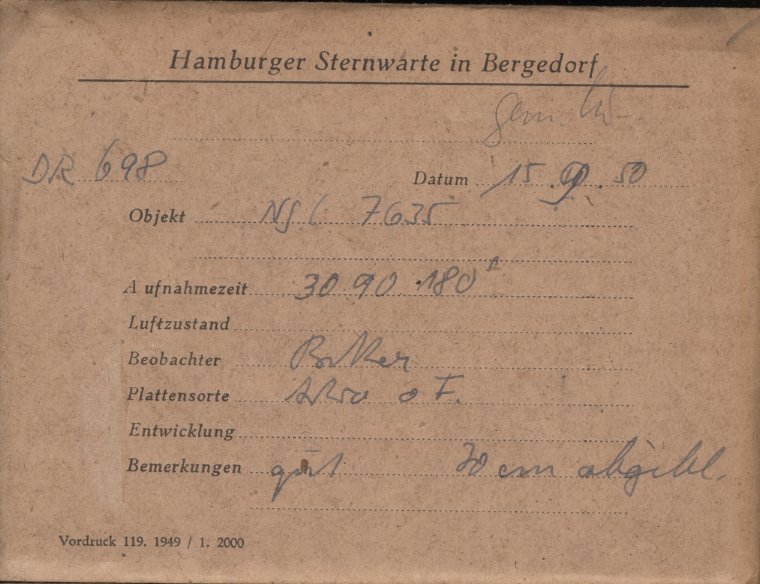 Hamburger Sternwarte in Bergedorf
gem.
DR 698
Datum 15.9.50
Objekt NGC 7635
Aufnahmezeit 30 90 180
Luftzustand
Beobachter
Plattensorte o F.
Entwicklung
Bemerkungen gut 70 cm abgebl.
Vordruck 119. 1949 / 1. 2000